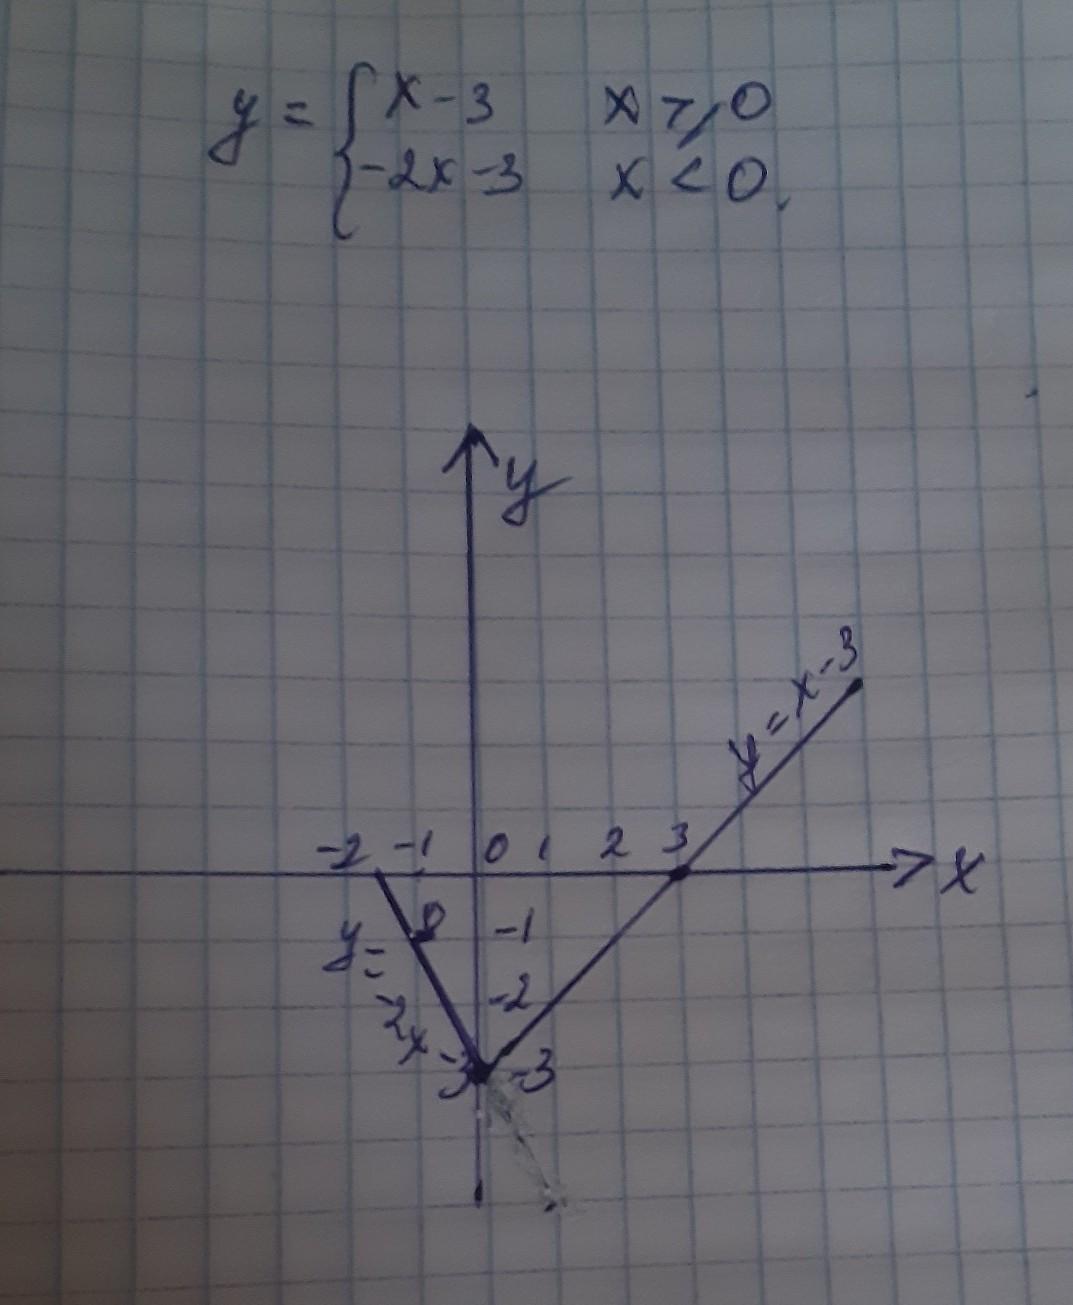 y = { x - 3   x ⩾ 0
-2x - 3   x < 0,
y
y = x - 3
-2 -1 0 1 2 3 x
-1
y =
-2
-2x - 3
-3